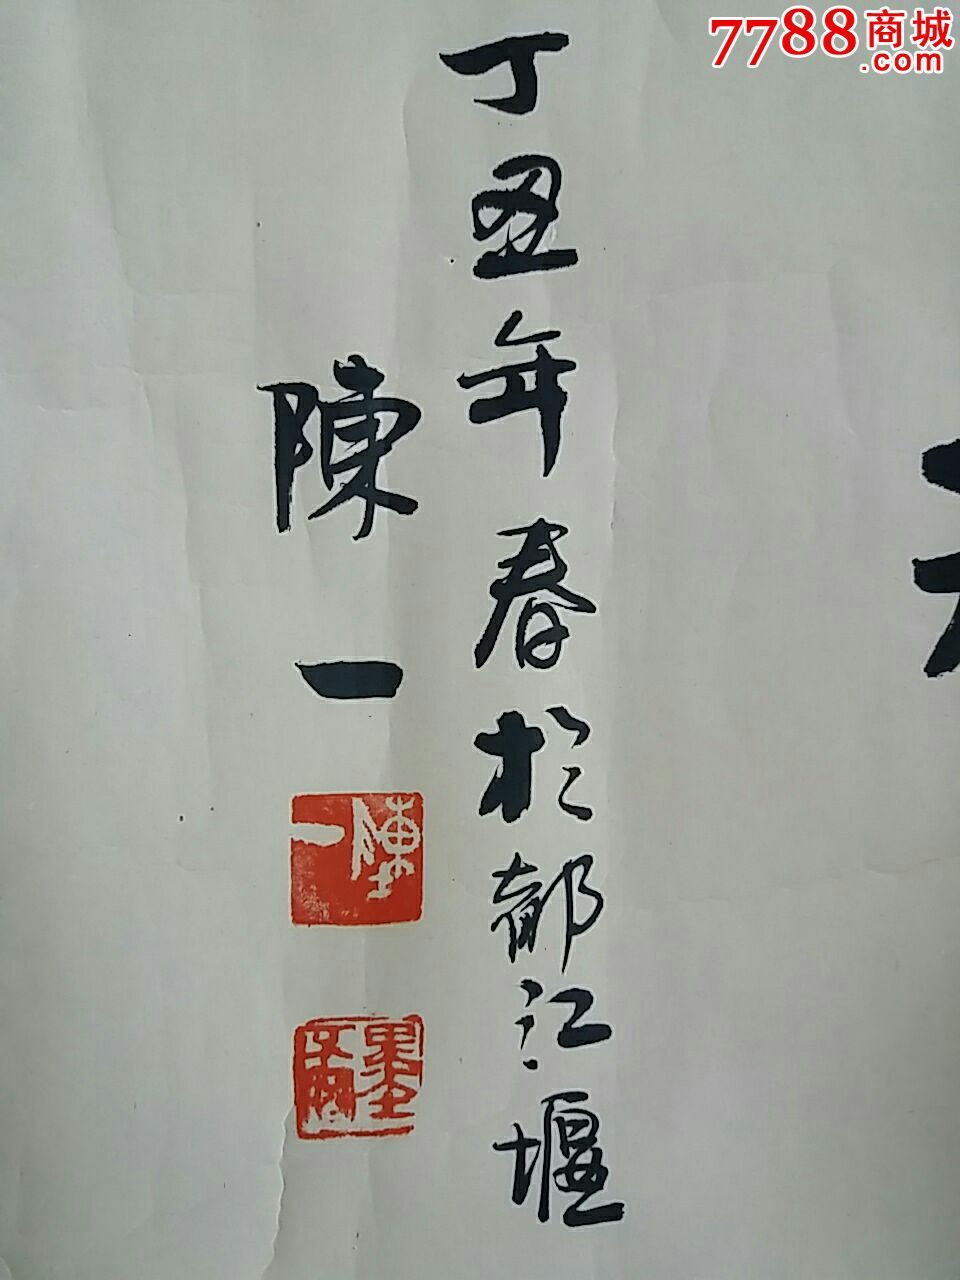 7788商城
.com
丁丑年春於都江堰
陳一
陳一